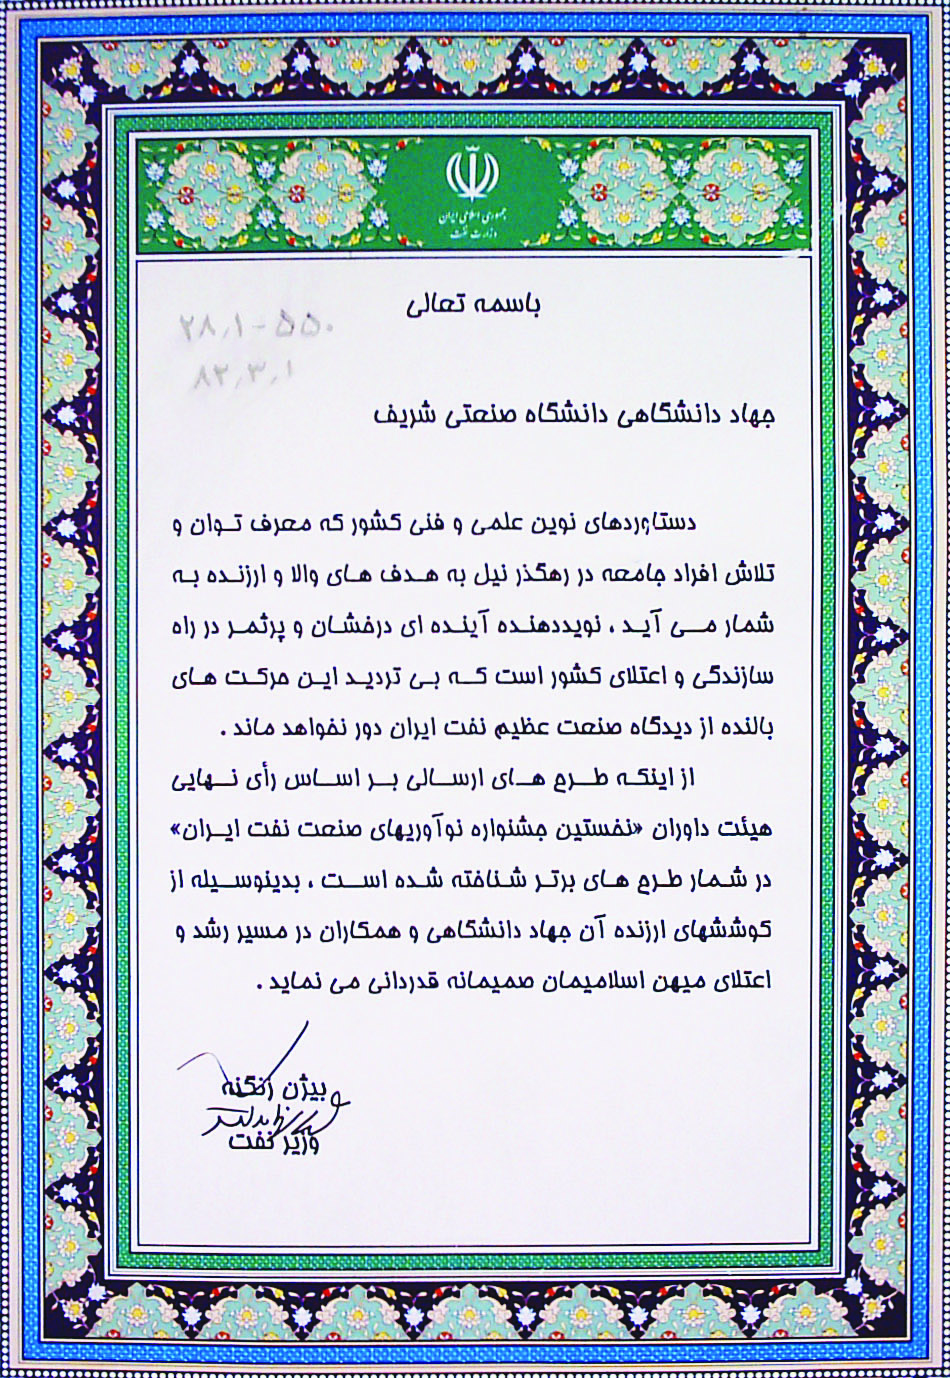 جمهوری اسلامی ایران
وزارت نفت
باسمه تعالی
۲۸٫۱-۵۵۰
۸۲٫۳٫۱
جهاد دانشگاهی دانشگاه صنعتی شریف
دستاوردهای نوین علمی و فنی کشور که معرف توان و
تلاش افراد جامعه در رهگذر نیل به هدف های والا و ارزنده به
شمار می آید ، نویددهنده آینده ای درخشان و پرثمر در راه
سازندگی و اعتلای کشور است که بی تردید این حرکت های
بالنده از دیدگاه صنعت عظیم نفت ایران دور نخواهد ماند .
از اینکه طرح های ارسالی بر اساس رأی نهایی
هیئت داوران «نخستین جشنواره نوآوریهای صنعت نفت ایران»
در شمار طرح های برتر شناخته شده است ، بدینوسیله از
کوششهای ارزنده آن جهاد دانشگاهی و همکاران در مسیر رشد و
اعتلای میهن اسلامیمان صمیمانه قدردانی می نماید .
بیژن زنگنه
وزیر نفت